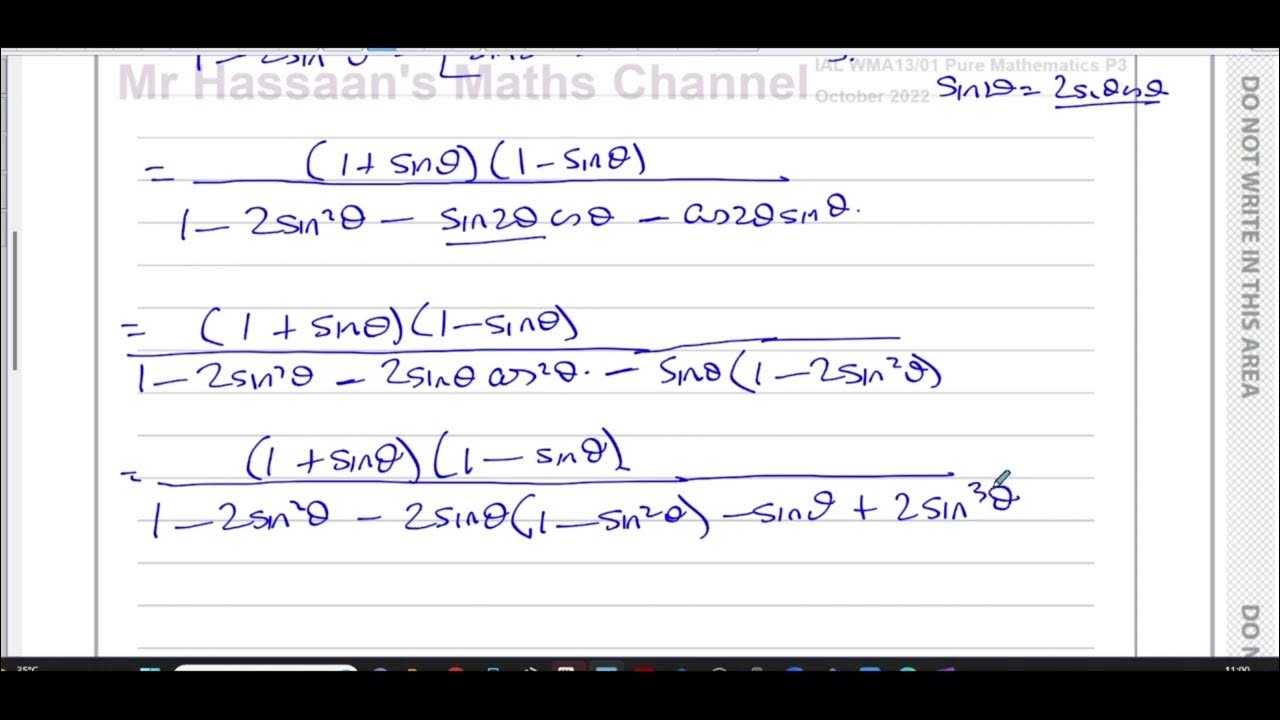 1 - 2sin²θ
Mr Hassaan's Maths Channel
IAL WMA13/01 Pure Mathematics P3
October 2022
sin2θ = 2sinθcosθ
= (1 + sinθ)(1 - sinθ)
1 - 2sin²θ - sin2θ cosθ - cos2θ sinθ.
= (1 + sinθ)(1 - sinθ)
1 - 2sin²θ - 2sinθ cos²θ. - sinθ(1 - 2sin²θ)
= (1 + sinθ)(1 - sinθ)
1 - 2sin²θ - 2sinθ(1 - sin²θ) - sinθ + 2sin³θ
DO NOT WRITE IN THIS AREA
DO N
35°C
11:00